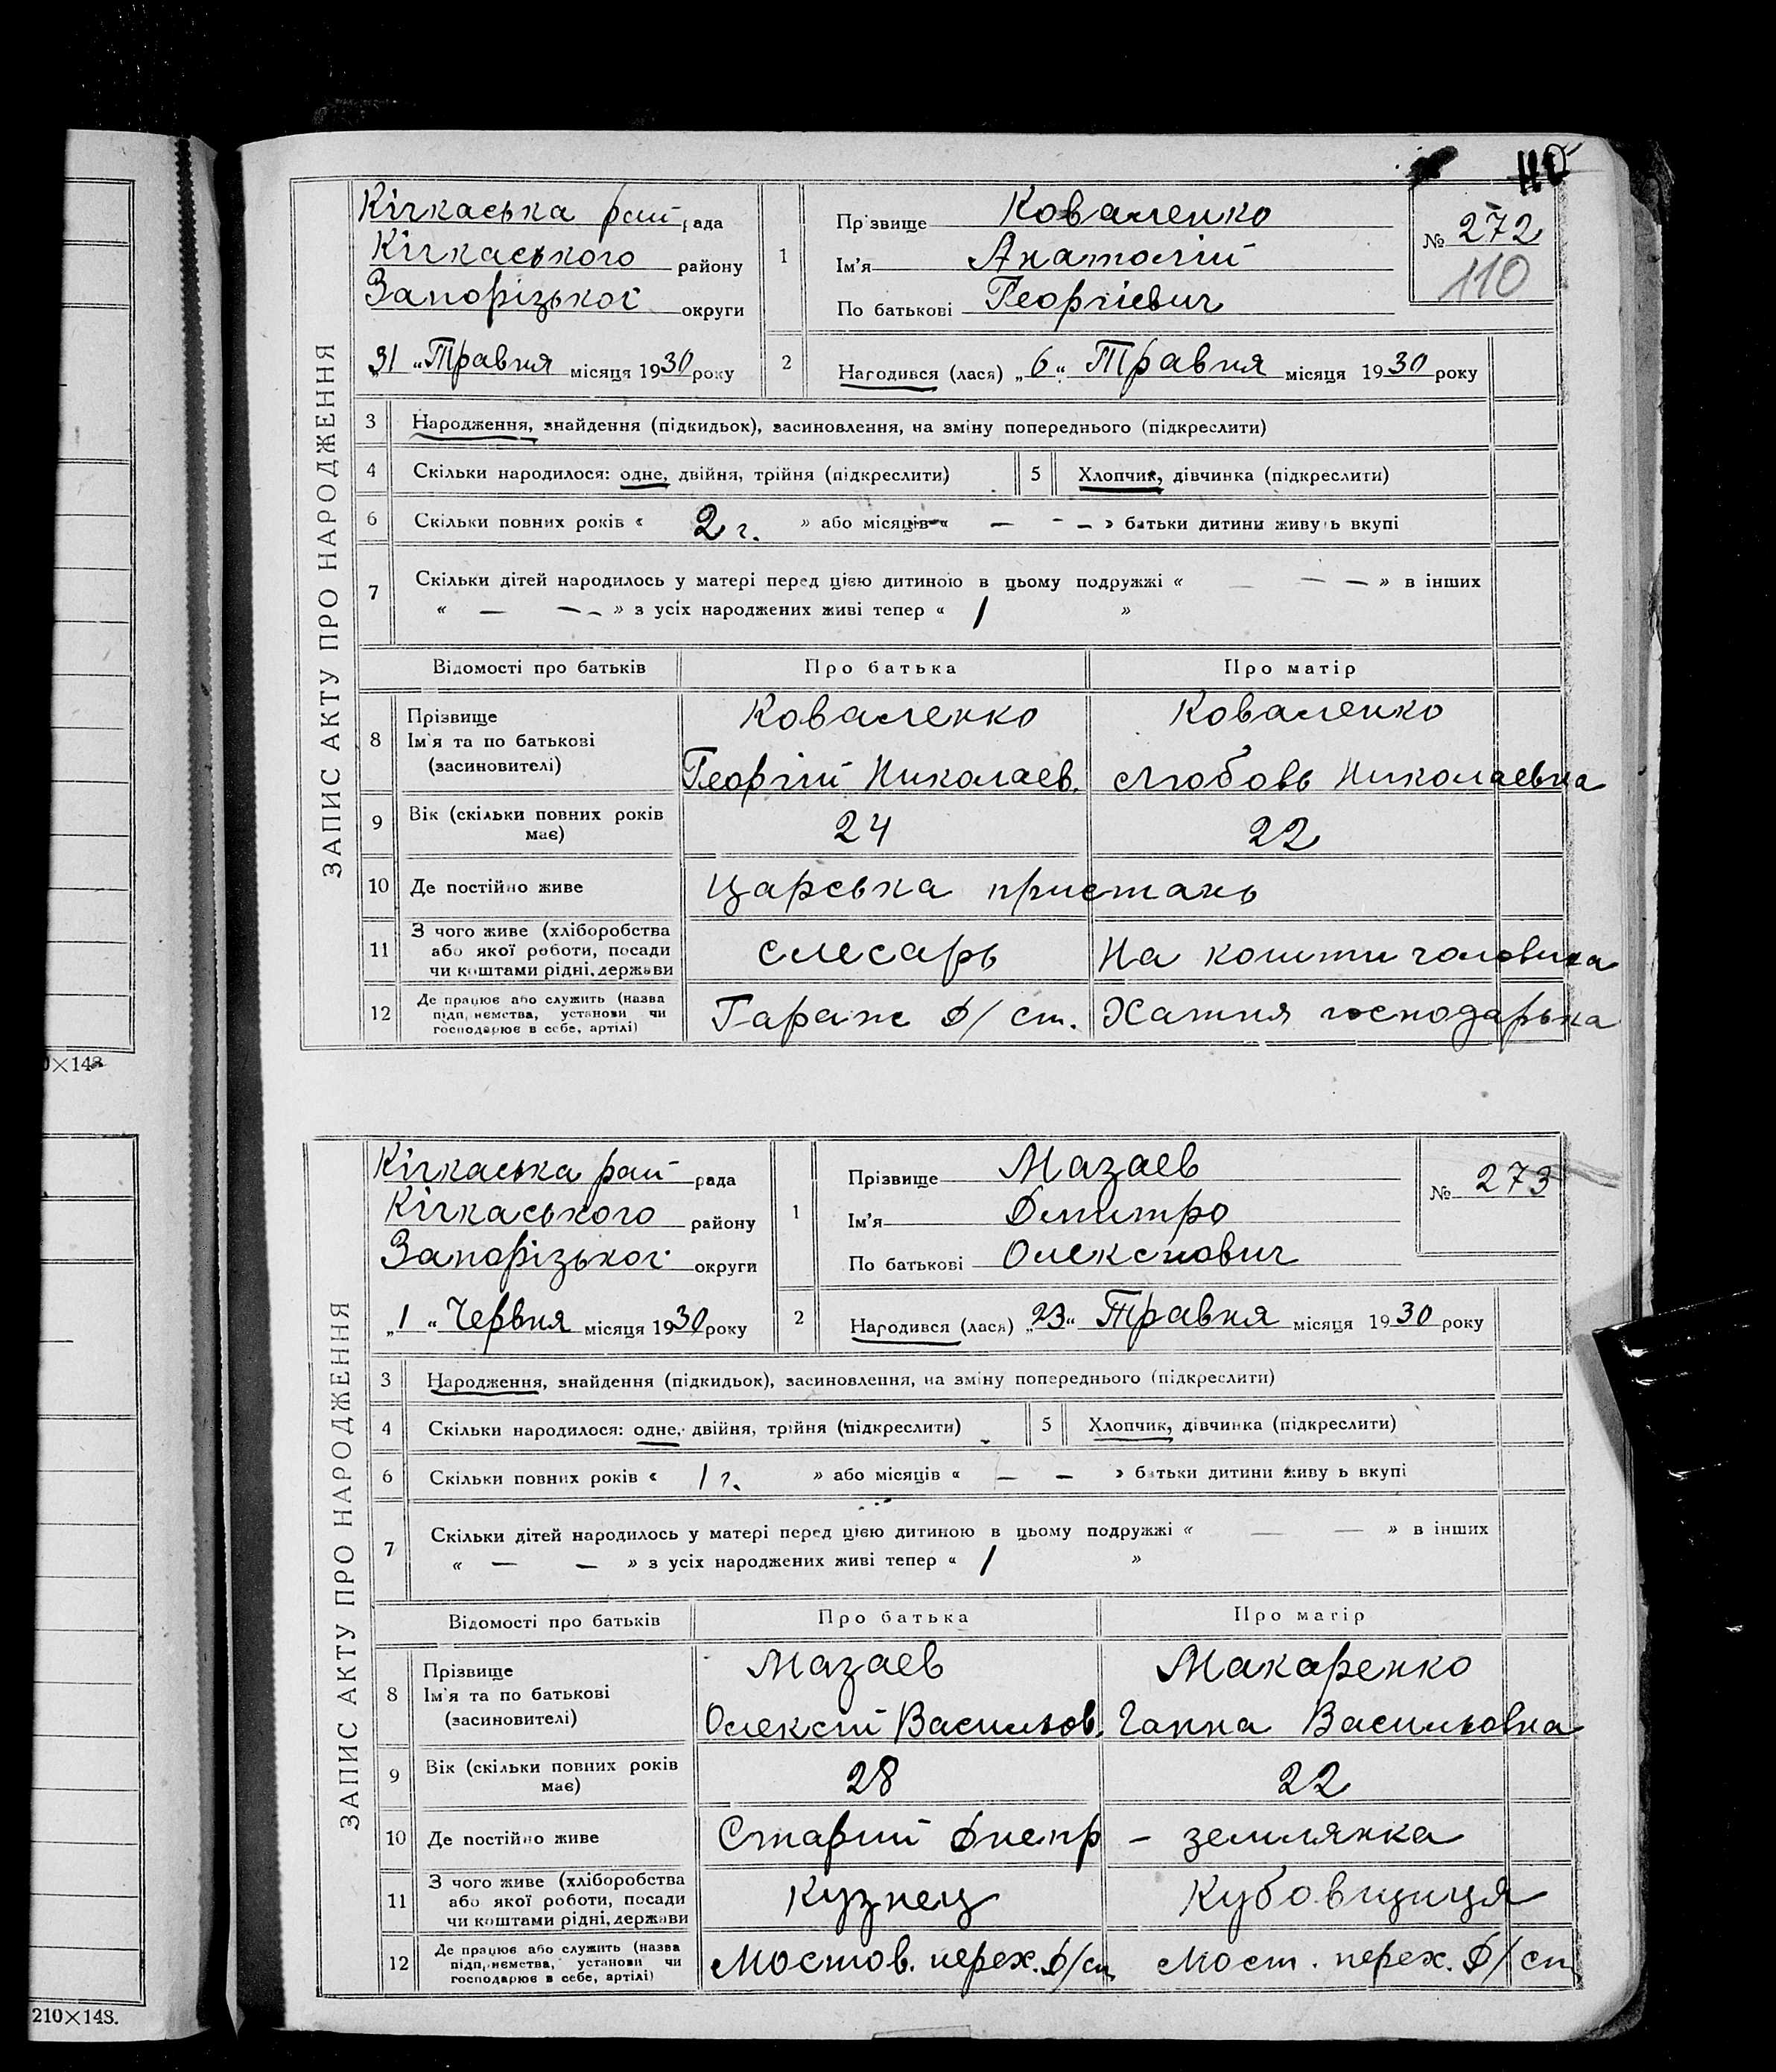 110
ЗАПИС АКТУ ПРО НАРОДЖЕННЯ
Кічкаська рай рада
Кічкаського району
Запорізької округи
„31“ Травня місяця 1930 року
1
Прізвище Коваленко
Ім'я Анатолій
По батькові Георгіевич
№ 272
110
2
Народився (лася) „6“ Травня місяця 1930 року
3 Народження, знайдення (підкидьок), засиновлення, на зміну попереднього (підкреслити)
4 Скільки народилося: одне, двійня, трійня (підкреслити) 5 Хлопчик, дівчинка (підкреслити)
6 Скільки повних років « 2 г. » або місяців « — - — » батьки дитини живуть вкупі
7 Скільки дітей народилось у матері перед цією дитиною в цьому подружжі « — — — » в інших
« — — — » з усіх народжених живі тепер « 1 »
Відомості про батьків Про батька Про матір
8 Прізвище Коваленко Коваленко
Ім'я та по батькові
(засиновителі) Георгій Николаев. Любовь Николаевна
9 Вік (скільки повних років має) 24 22
10 Де постійно живе Царська пристань
11 З чого живе (хліборобства
або якої роботи, посади
чи коштами рідні, держави Слесарь На кошти чоловика
12 Де працює або служить (назва
підприємства, установи чи
господарює в себе, артілі) Гараж Д/ст. Хатня господарька
0×148
ЗАПИС АКТУ ПРО НАРОДЖЕННЯ
Кічкаська рай рада
Кічкаського району
Запорізької округи
„1“ Червня місяця 1930 року
1
Прізвище Мазаев
Ім'я Дмитро
По батькові Олексйович
№ 273
2
Народився (лася) „23“ Травня місяця 1930 року
3 Народження, знайдення (підкидьок), засиновлення, на зміну попереднього (підкреслити)
4 Скільки народилося: одне, двійня, трійня (підкреслити) 5 Хлопчик, дівчинка (підкреслити)
6 Скільки повних років « 1 г. » або місяців « — — » батьки дитини живу ь вкупі
7 Скільки дітей народилось у матері перед цією дитиною в цьому подружжі « — — » в інших
« — — » з усіх народжених живі тепер « 1 »
Відомості про батьків Про батька Про матір
8 Прізвище Мазаев Макаренко
Ім'я та по батькові
(засиновителі) Олексій Васильов. Ганна Васильовна
9 Вік (скільки повних років має) 28 22
10 Де постійно живе Старий Днепр – землянка
11 З чого живе (хліборобства
або якої роботи, посади
чи коштами рідні, держави Кузнец Кубовщиця
12 Де працює або служить (назва
підприємства, установи чи
господарює в себе, артілі) Мостов. перех. Д/ст. Мост. перех. Д/ст
210×148.